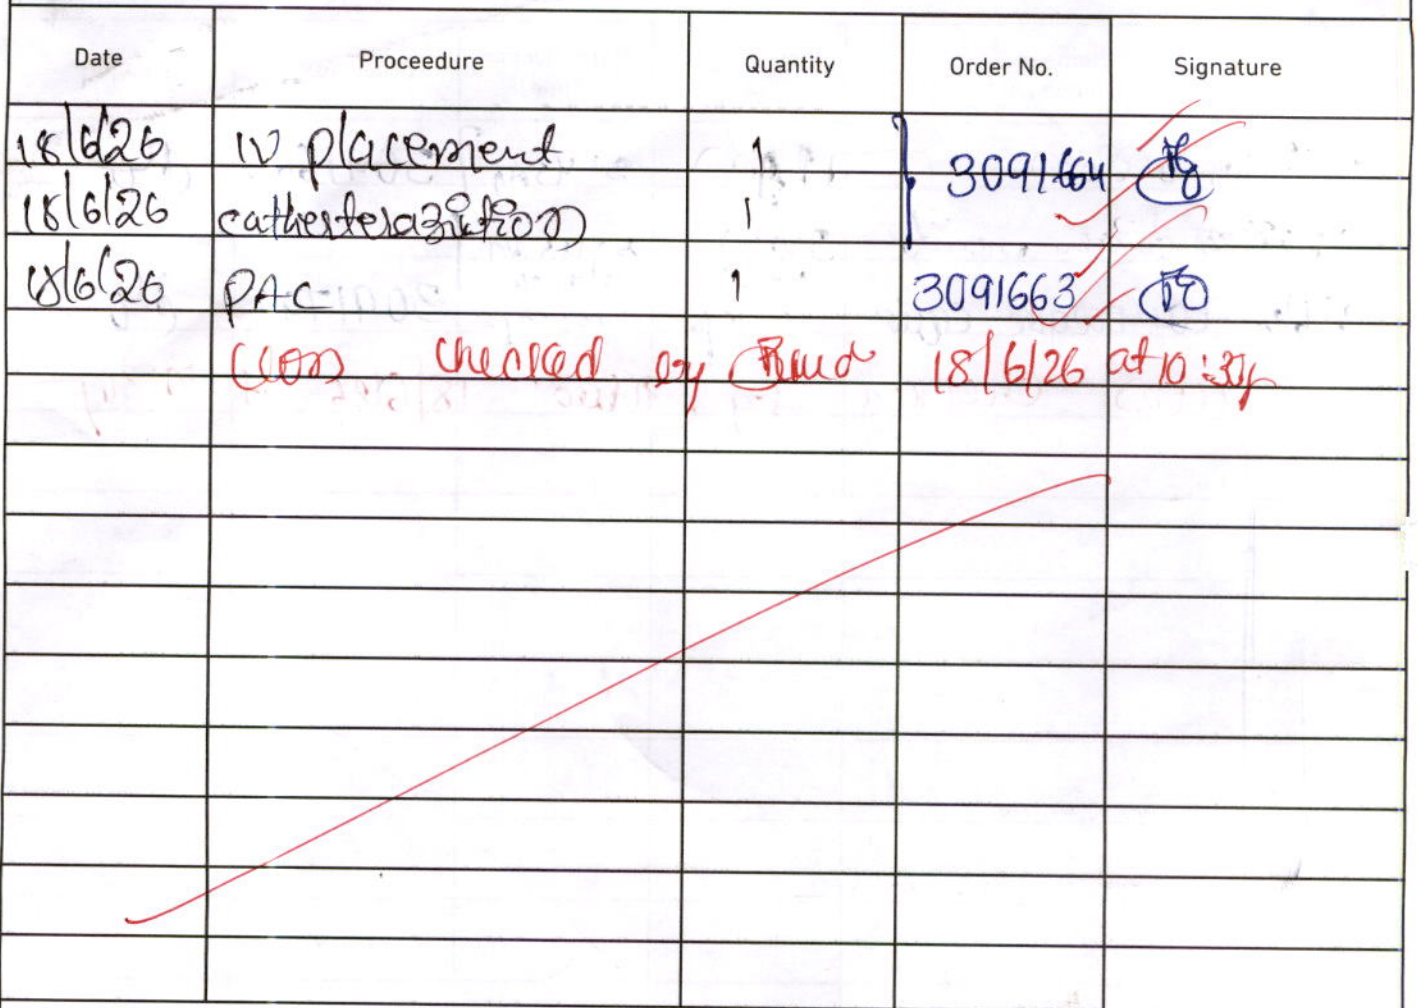 Date Proceedure Quantity Order No. Signature
18/6/26 IV placement 1 3091664
18/6/26 catheterazition 1
18/6/26 PAC 1 3091663
checked by 18/6/26 at 10:30p